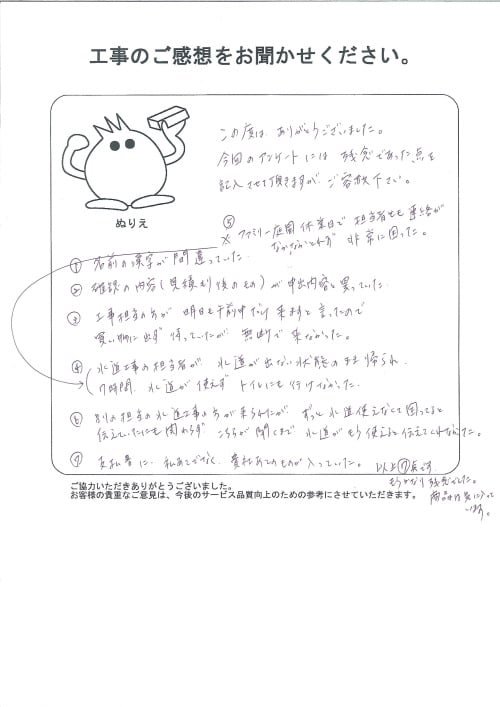 工事のご感想をお聞かせください。
この度は、ありがとうございました。
今回のアンケートには 残念であった点を
記入させて頂きますが、ご容赦下さい。
ぬりえ
⑤
※ ファミリー庭園 休業日で 担当者とも 連絡が
なかなかとれず 非常に困った。
① 名前の漢字が間違っていた。
② 確認の内容(見積もり後のもの)が申出内容と異っていた。
③ 工事担当の方が 明日も午前中だけ来ますと言ったので
買い物に出ず 待っていたが 無断で来なかった。
④ 水道工事の担当者が、水道が出ない状態のまま帰られ、
7時間、水道が使えず トイレにも行けなかった。
⑥ 別の担当の水道工事の方が来られたが、ずっと水道使えなくて困ってると
伝えていたにも関わらず こちらが聞くまで 水道がもう使えると伝えてくれなかった。
⑦ 支払書に、私あてでなく、貴社あてのものが入っていた。
以上⑦点です
かなり残念でした。
商品は気に入って
います。
ご協力いただきありがとうございました。
お客様の貴重なご意見は、今後のサービス品質向上のための参考にさせていただきます。